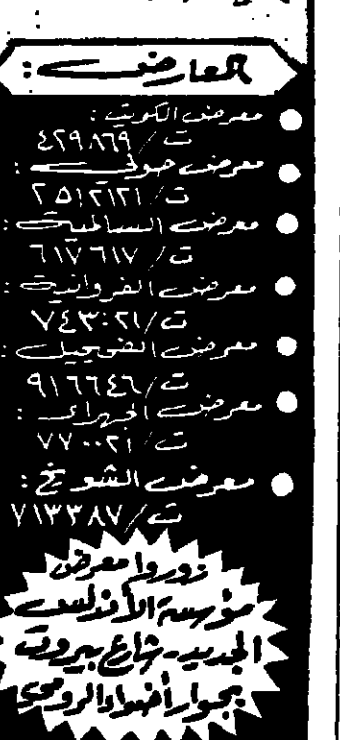 المعارض :
معرض الكويت :
ت/ ٤٢٩٨٦٩
معرض حولي :
ت/ ٢٥١٢١٢١
معرض السالمية :
ت/ ٦١٧٦١٧
معرض الفروانية :
ت/ ٧٤٣٠٢١
معرض الفحيحيل :
ت/ ٩١٦٦٤٦
معرض الجهراء :
ت/ ٧٧٠٠٢١
معرض الشويخ :
ت/ ٧١٣٣٨٧
زوروا معرض
مؤسسة الأندلس
الجديد - شارع بيروت
بجوار أضواء الرومي